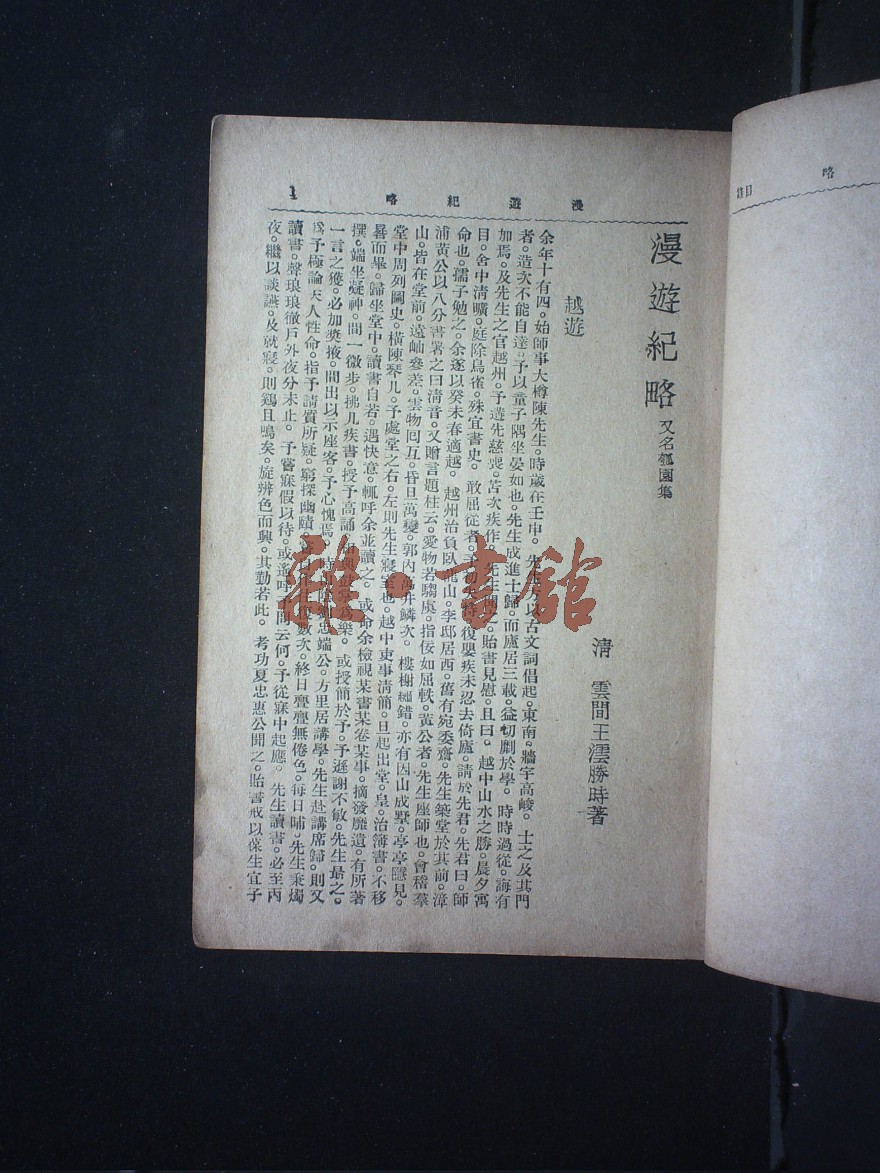 漫遊紀略
1
漫遊紀略 又名瓠園集
清 雲間王澐勝時著
越遊
余年十有四。始師事大樽陳先生。時歲在壬申。先生方以古文詞倡起。東南。牆宇高峻。士之及其門
者。造次不能自達。予以童子隅坐晏如也。先生成進士歸。而廬居三載。益切劘於學。時時過從。誨有
加焉。及先生之官越州。予遘先慈喪。苫次疾作。先生聞之。貽書見慰。且曰。越中山水之勝。晨夕寓
目。舍中淸曠。庭除鳥雀。殊宜書史。敢屈從者。復嬰疾未忍去倚廬。請於先君。先君曰。師
命也。孺子勉之。余遂以癸未春適越。越州治負臥龍山。李邸居西。舊有宛委齋。先生築堂於其前。漳
浦黃公以八分書署之曰淸音。又贈言題柱云。愛物若騶虞。指佞如屈軼。黃公者。先生座師也。會稽羣
山。皆在堂前。遠岫參差。雲物回互。昏旦萬變。郭內萬井鱗次。樓榭繡錯。亦有因山成墅。亭亭隱見。
堂中周列圖史。橫陳琴几。予處堂之右。左則先生寢室也。越中吏事淸簡。旦起出堂。皇。治簿書。不移
晷而畢。歸坐堂中。讀書自若。遇快意。輒呼余並讀之。或命余檢視某書某卷某事。摘發靡遺。有所著
撰。端坐凝神。間一微步。拂几疾書。授予高誦。爲樂。或授簡於予。予遜謝不敏。先生勗之。
一言之獲。必加獎掖。間出以示座客。予心愧焉。忠端公。方里居講學。先生赴講席歸。則又
爲予極論天人性命。指予請質所疑。窮探幽賾。數次。終日亹亹無倦色。每日晡。先生秉燭
讀書。聲琅琅徹戶外夜分未止。予嘗寐假以待。或遙呼予問云何。予從寐中起應。先生讀書。必至丙
夜。繼以談讌。及就寢。則鷄且鳴矣。旋辨色而興。其勤若此。考功夏忠惠公聞之。貽書戒以葆生宜子
略 目錄
雜·書館